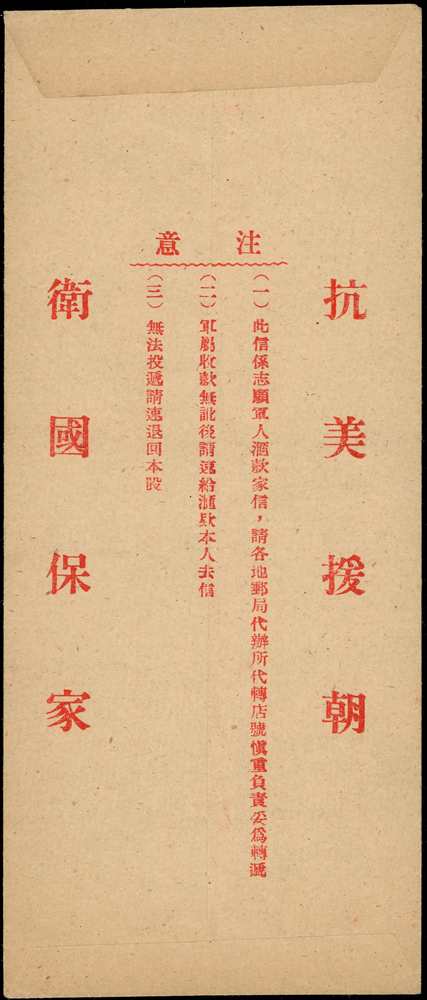 抗美援朝
注意
（一）此信係志願軍人滙款家信，請各地郵局代辦所代轉店號慎重負責妥爲轉遞
（二）軍屬收款無訛後請速給滙款本人去信
（三）無法投遞請速退回本段
衛國保家